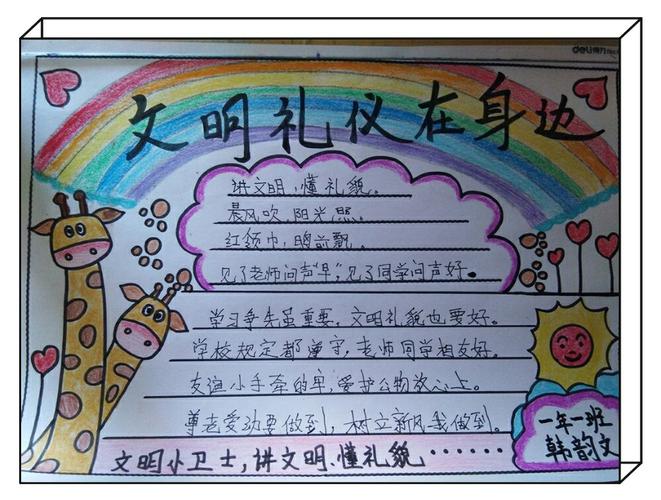 deli得力
文明礼仪在身边
讲文明，懂礼貌。
晨风吹，阳光照。
红领巾，胸前飘。
见了老师问声"早"，见了同学问声好。
学习争先虽重要，文明礼貌也要好。
学校规定都遵守，老师同学相友好。
友谊小手牵的牢，爱护公物放心上。
尊老爱幼要做到，树立新风我做到。
文明小卫士，讲文明、懂礼貌······
一年一班
韩韵文